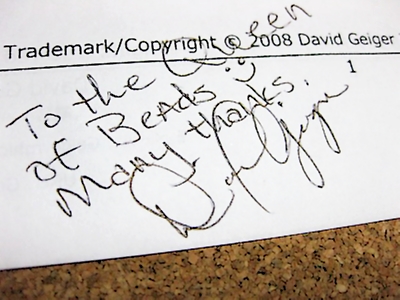 Trademark/Copyright © 2008 David Geiger
1
To the Queen
of Beads :)
Many thanks.